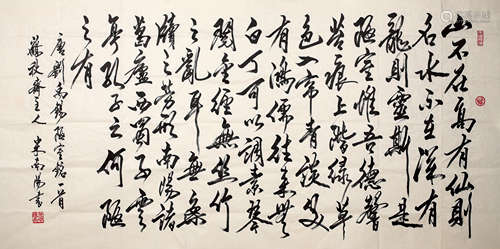 山不在高有仙則
名水不在深有
龍則靈斯是
陋室惟吾德馨
苔痕上階綠草
色入帘青談笑
有鴻儒往來無
白丁可以調素琴
閱金經無絲竹
之亂耳無案
牘之勞形南陽諸
葛廬西蜀子雲
亭孔子云何陋
之有
唐劉禹錫陋室銘一首
齋主人 米南陽書